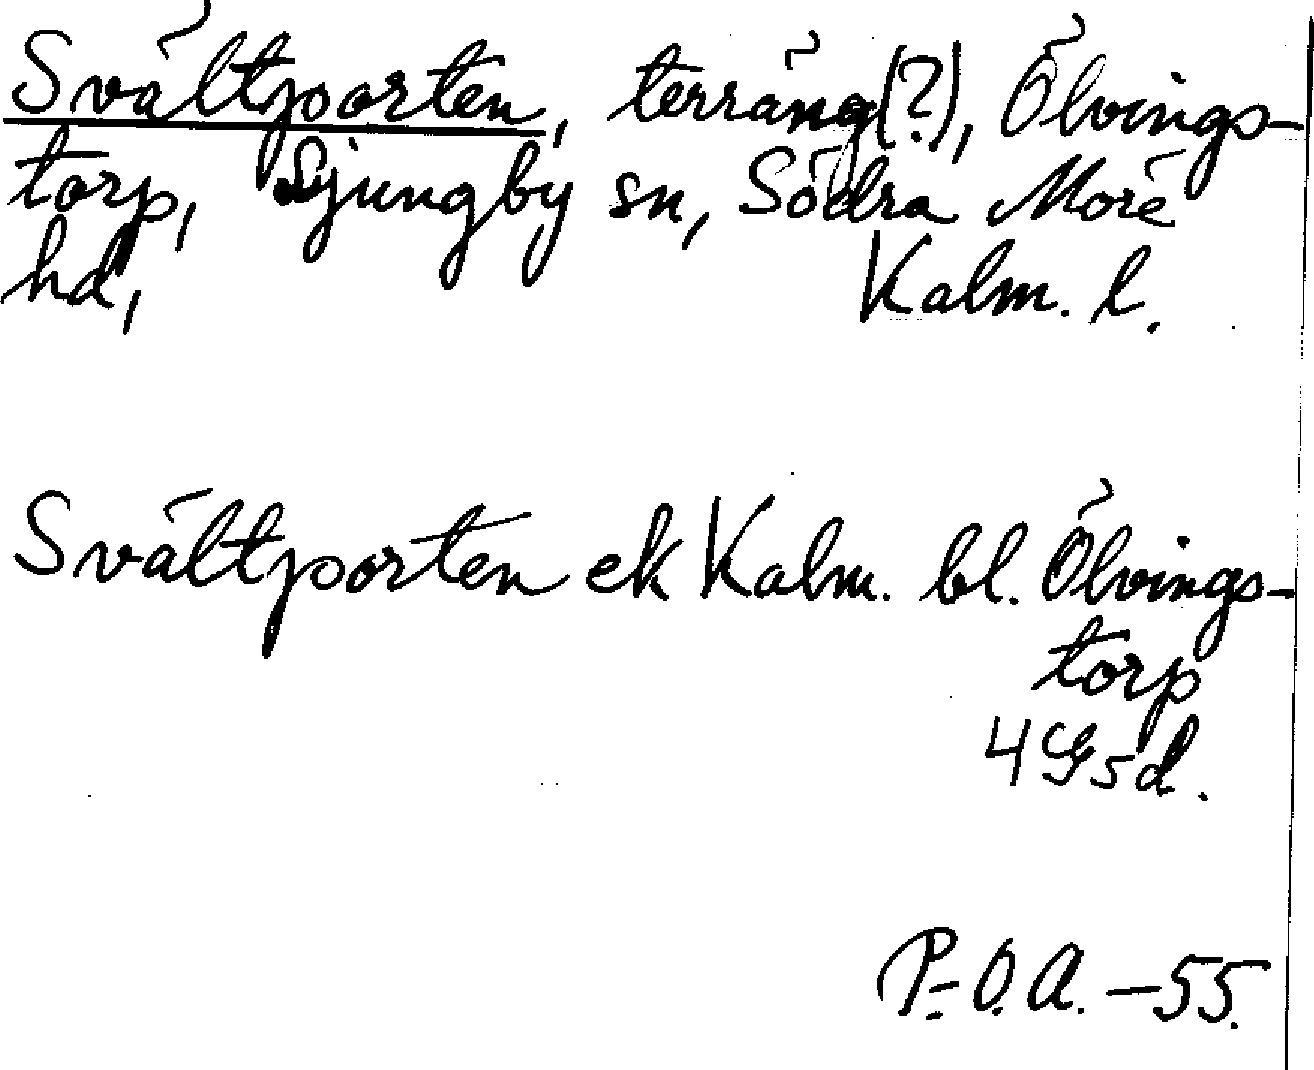 Svältporten, terräng(?), Ölvings-
torp, Ljungby sn, Södra Möre
hd, Kalm. l.
Svältporten ek Kalm. bl. Ölvings-
torp
4G5d.
P-O.A. -55.